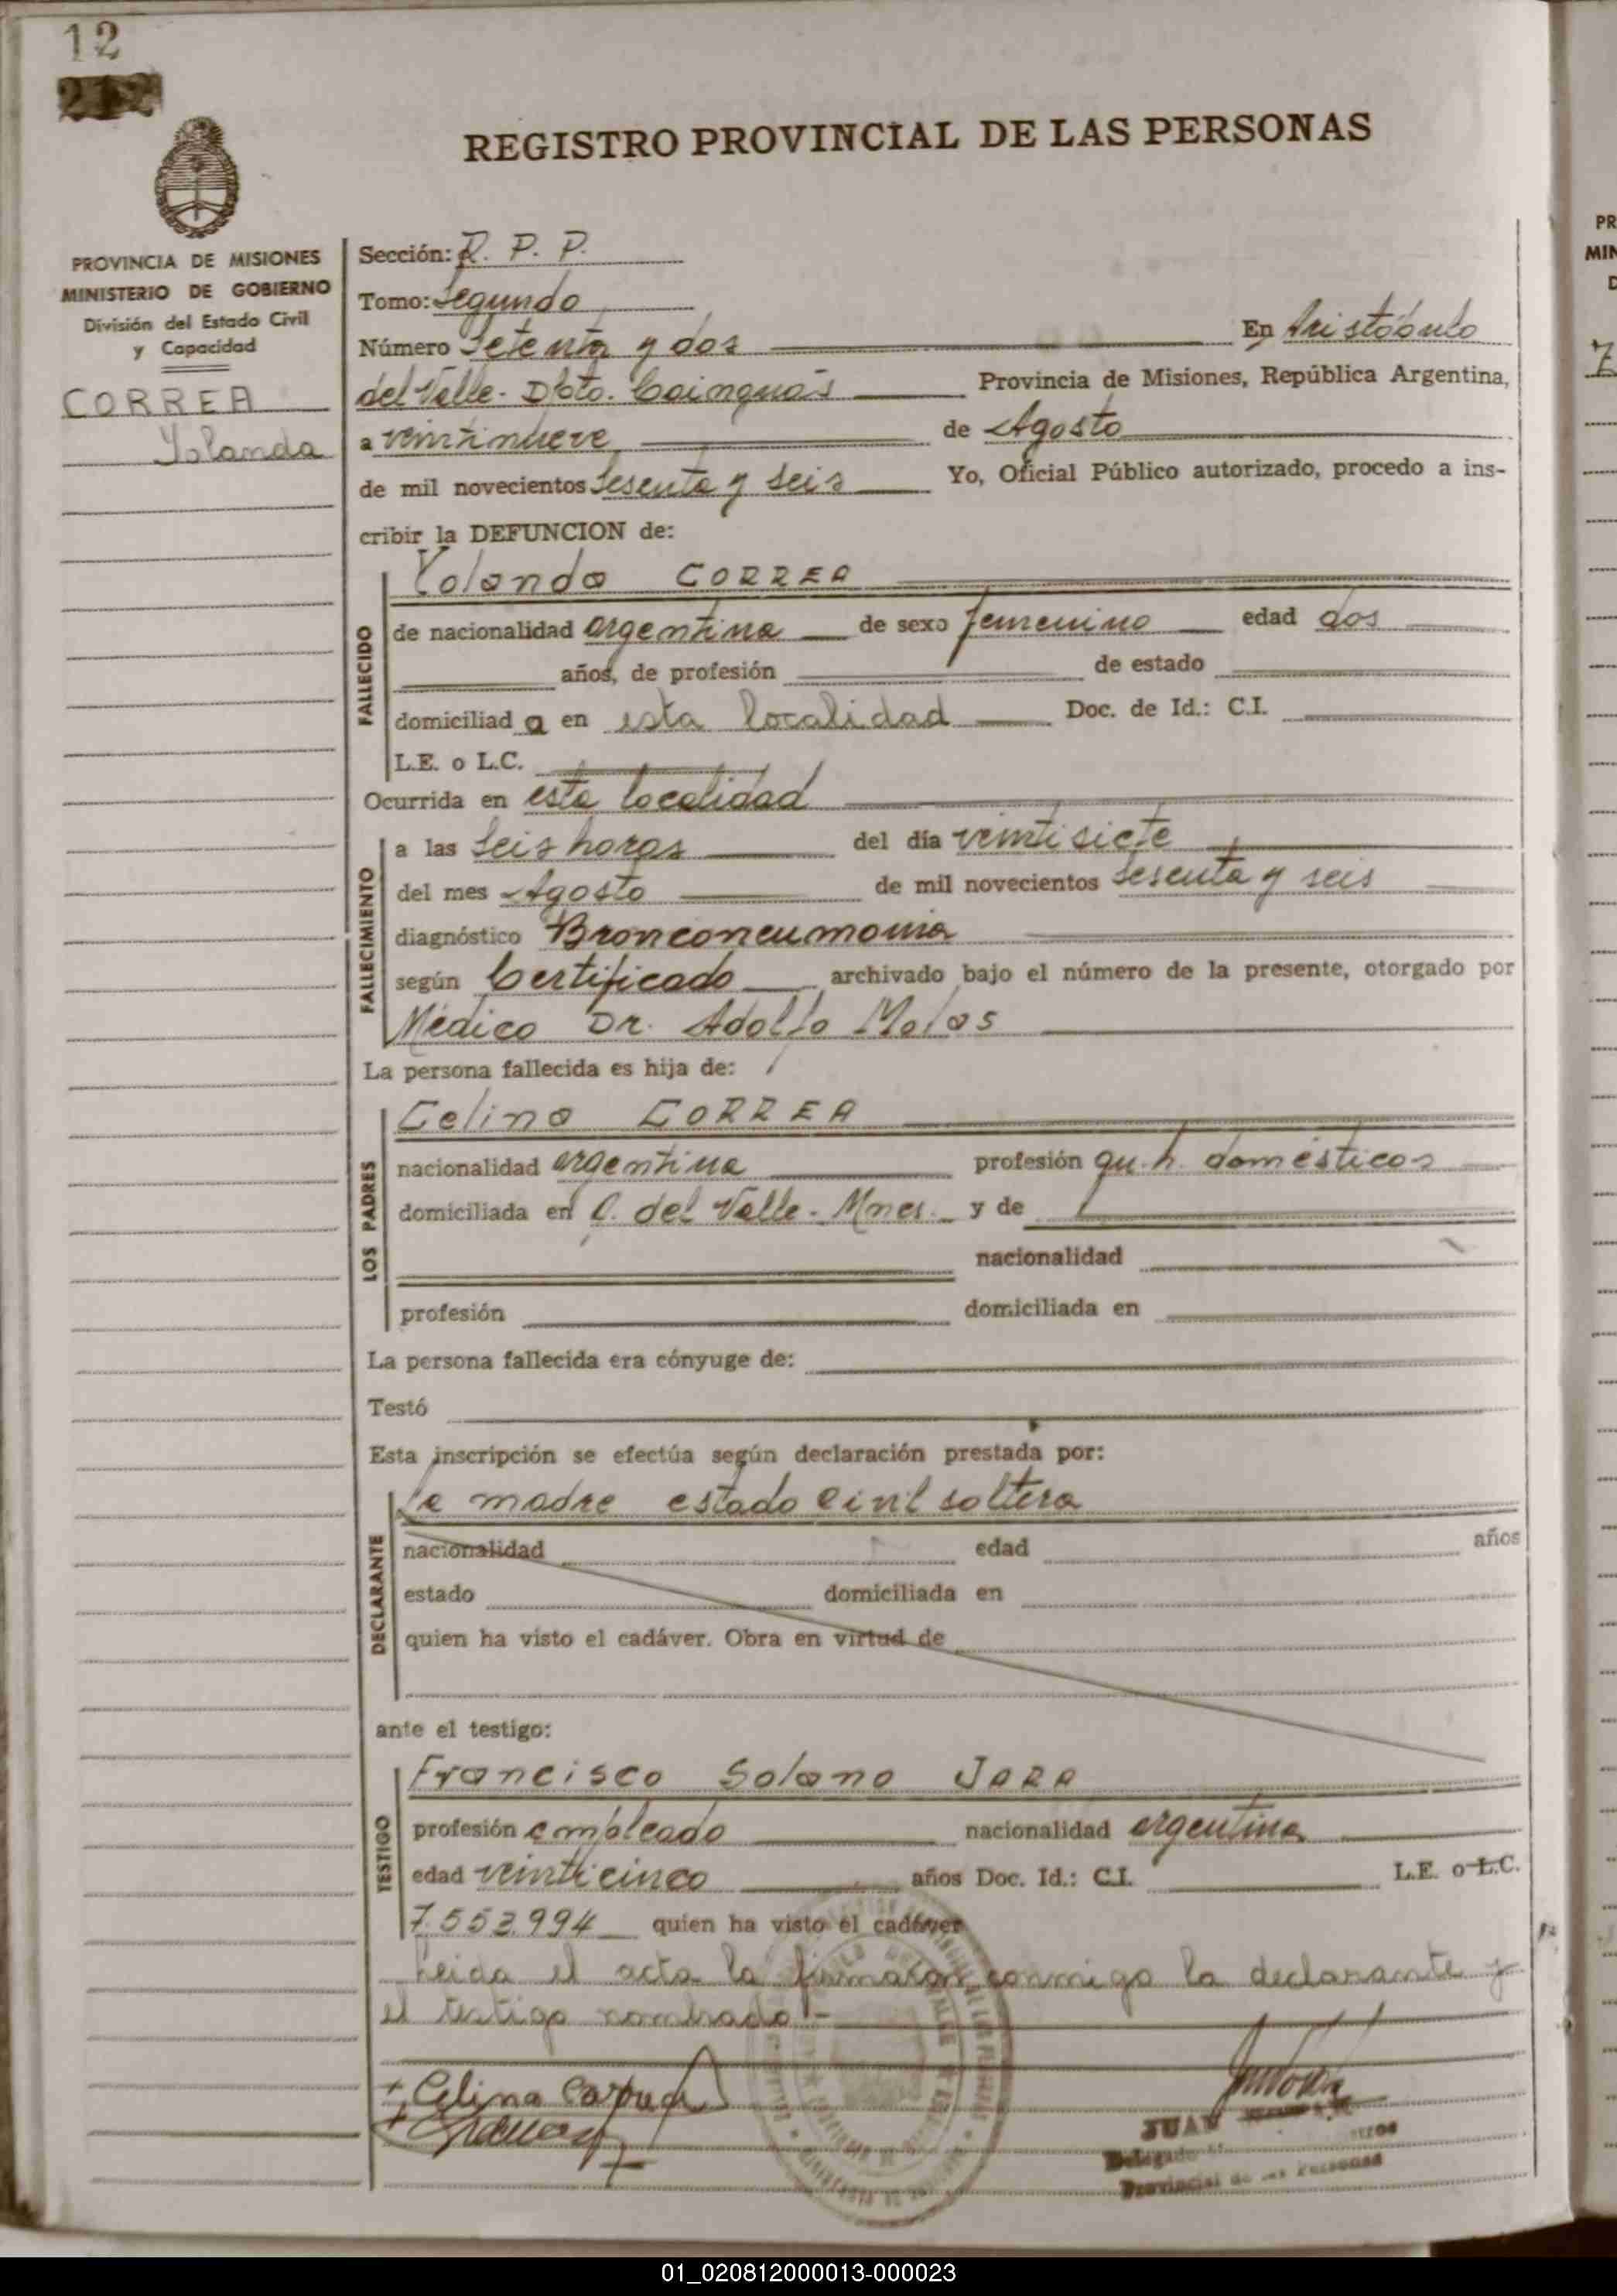 12
212
REGISTRO PROVINCIAL DE LAS PERSONAS
PROVINCIA DE MISIONES
MINISTERIO DE GOBIERNO
División del Estado Civil
y Capacidad
CORREA
Yolanda
Sección: R. P. P.
Tomo: Segundo
Número Setenta y dos En Aristóbulo
del Valle - Dpto. Cainguás Provincia de Misiones, República Argentina,
a veintinueve de Agosto
de mil novecientos sesenta y seis Yo, Oficial Público autorizado, procedo a ins-
cribir la DEFUNCION de:
FALLECIDO
Yolanda CORREA
de nacionalidad argentina de sexo femenino edad dos
años, de profesión de estado
domiciliad a en esta localidad Doc. de Id.: C.I.
L.E. o L.C.
Ocurrida en esta localidad
FALLECIMIENTO
a las Seis horas del día veintisiete
del mes Agosto de mil novecientos sesenta y seis
diagnóstico Bronconeumonia
según Certificado archivado bajo el número de la presente, otorgado por
Médico Dr. Adolfo
La persona fallecida es hija de:
LOS PADRES
Celina CORREA
nacionalidad argentina profesión qu. h. domésticos
domiciliada en A. del Valle - Mnes. y de
nacionalidad
profesión domiciliada en
La persona fallecida era cónyuge de:
Testó
Esta inscripción se efectúa según declaración prestada por:
DECLARANTE
La madre estado civil soltera
nacionalidad edad años
estado domiciliada en
quien ha visto el cadáver. Obra en virtud de
ante el testigo:
TESTIGO
Francisco Solano JARA
profesión empleado nacionalidad argentina
edad veinticinco años Doc. Id.: C.I. L.E. o L.C.
7.553.994 quien ha visto el cadáver
Leida el acta la firmaron conmigo la declarante y
el testigo nombrado.-
Celina Correa
JUAN
Delegado
Provincial de las Personas
PR
MIN
D
01_020812000013-000023